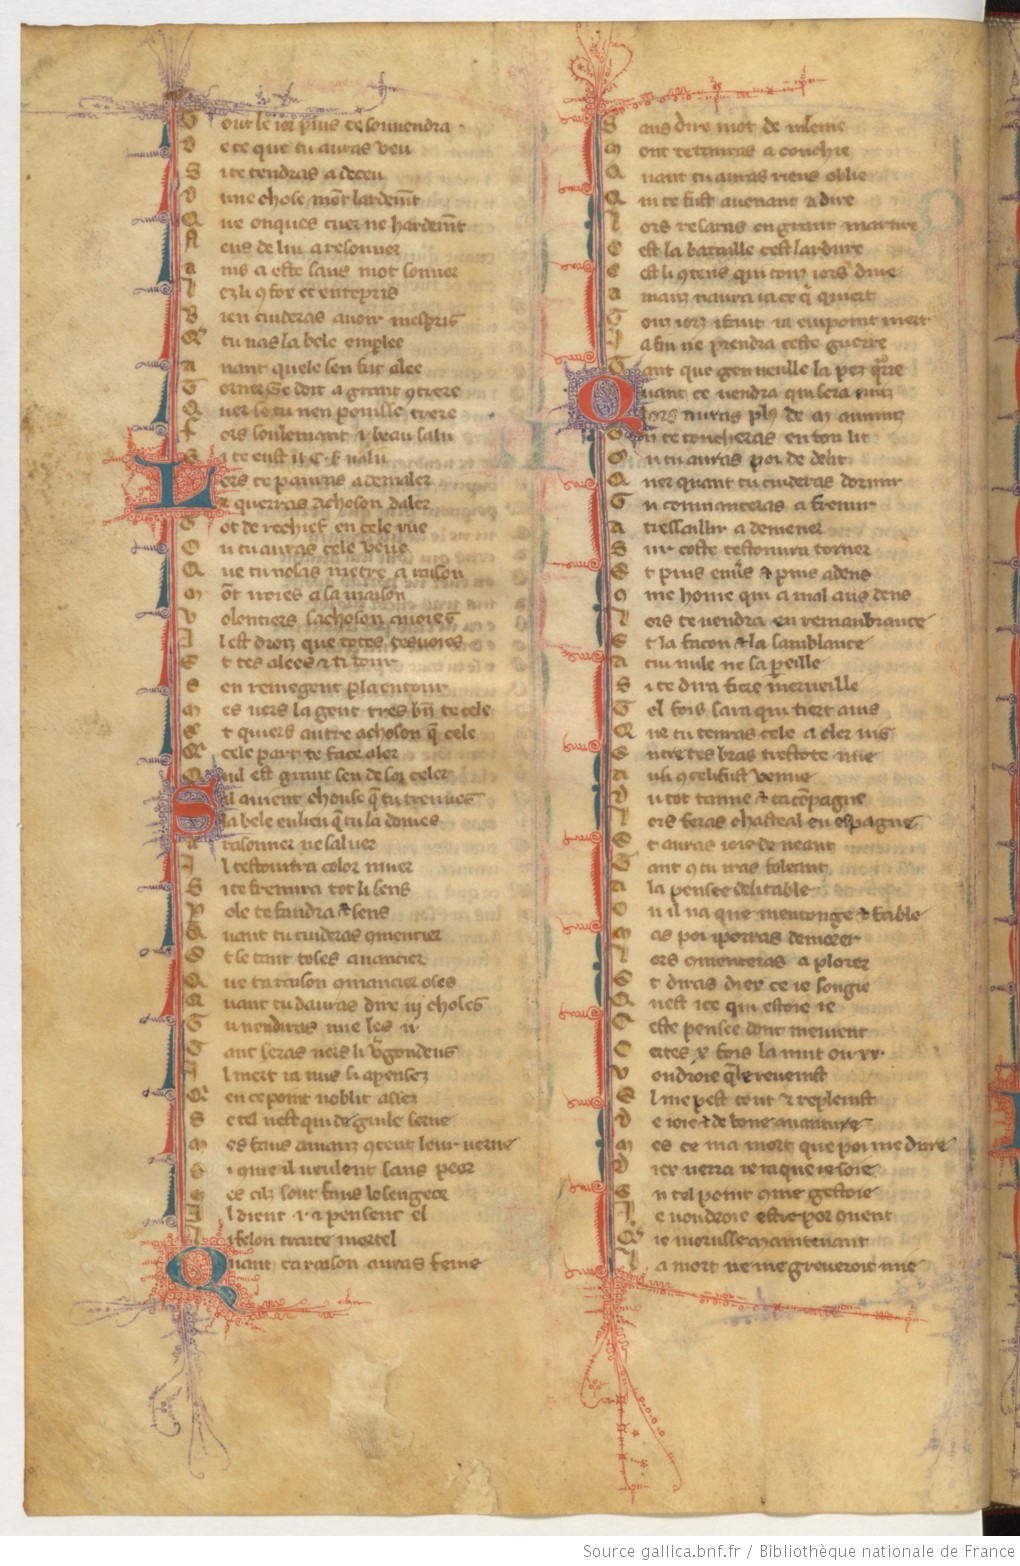 T out le ior puis te souuendra
D e ce que tu auras veu
S i te tendras a deceu
D une chose mot lardemt
Q ue onques cuer ne hardemt
N eus de lui aresonner
a nis a este sans mot sonner
l ez li 9 fox et entrepris
B ien cuideras auoir mespris
Q tu nas la bele emplee
a uant quele sen fut alee
T orner se doit a grant 9trere
Q uer se tu nen pouisse trere
f ors soulemant .i. beau salu
S i te eust il .C. k ualu
L ors te panras a demaler
E querras achoson daler
T ot de rechief en cele rue
O u tu auras cele veue
Q ue tu nosas metre a raison
m ot iroies a sa maison
v olontiers sachoson auoies
I l est droiz que totes tes uoies
E t tes alees & ti tour
S en reuiegent p la entour
m es uers la gent tres bn te cele
E t quiers autre achoson q cele
Q cele part te face aler
Q uil est grant sen de soi celer
S il auient chouse q tu treuues
la bele en lieu q tu la doiues
a rasonner ne saluer
I l testouura color muer
S i te fremira tot li sens
P ole te faudra & sens
Q uant tu cuideras 9mencier
E t se tant toses auancier
Q ue ta raison 9mancier oses
Q uant tu dauras dire iij choses
T u nen diras mie les ii
T ant seras uers li vgondeus
I l niert ia nus si apensez
Q en ce point noblit assez
S e tel nest qui de guile serue
m es faus amanz 9tent leur verue
S i 9me il veulent sans peor
I cés cilz sont faus losengeor
I l dient .i. & pensent el
L i felon traite mortel
Q uant ta raison auras fenie
S ans dire mot de vilenie
m ont te tanras a conchie
Q uant tu auras riens oblie
Q ui te fust auenant a dire
l ors resaras en grant martire
C est la bataille cest lardure
C est li 9tens qui touz iors dure
a manz naura ia ce q quiert
T ouz iorz i faut ia en point niert
I a fin ne prendra ceste guerre
T ant que gen veulle la pez qrre
Q uant ce uendra qui sera nuiz
lors auras plus de M anniuz
T u te coucheras en ton lit
O u tu auras poi de delit
Q uer quant tu cuideras dormir
T u commanceras a fremir
a tressaillir a demener
S ur coste testoura torner
E t puis enus & puis adens
9 me home qui a mal aus dens
l ors te vendra en remanbrance
E t la facon & la samblance
a cui nule ne sa peille
S i te dira fiere merueille
T el fois sara qui tiert auis
Q ue tu tenras cele a cler uis
E ntre tes bras trestote nue
a usi 9 cel i fust venue
D u tot tamie & ta compagne
l ors feras chasteal en espagne
E t auras ioie de neant
T ant 9 tu iras foleant
a la pensee delitable
O u il na que mensonge & fable
m as poi i porras demorer
l ors 9menteras a plorer
E t diras diex ce ie songie
Q uest ice qui estoie ie
C este pensee dont me uient
C ertes x fois la nuit ou xx
v oudroie qle reuenist
E l me pest tout & replenist
D e ioie & de bone auanture
m es ce ma mort que poi me dure
D iex verra ie ia que ie soie
E n tel point 9 me gestoie
I e uoudroie estre por quent
Q ie morusse maintenant
l a mort ne me greueroit mie
Source gallica.bnf.fr / Bibliothèque nationale de France